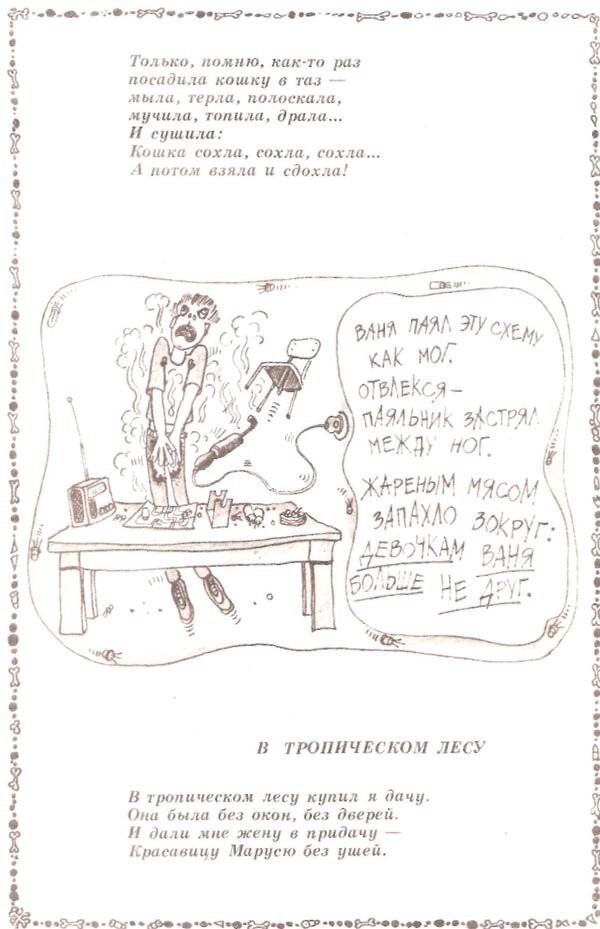 Только, помню, как-то раз
посадила кошку в таз —
мыла, терла, полоскала,
мучила, топила, драла...
И сушила:
Кошка сохла, сохла, сохла...
А потом взяла и сдохла!
ВАНЯ ПАЯЛ ЭТУ СХЕМУ
КАК МОГ.
ОТВЛЕКСЯ—
ПАЯЛЬНИК ЗАСТРЯЛ
МЕЖДУ НОГ.
ЖАРЕНЫМ МЯСОМ
ЗАПАХЛО ВОКРУГ:
ДЕВОЧКАМ ВАНЯ
БОЛЬШЕ НЕ ДРУГ.
В ТРОПИЧЕСКОМ ЛЕСУ
В тропическом лесу купил я дачу.
Она была без окон, без дверей.
И дали мне жену в придачу —
Красавицу Марусю без ушей.